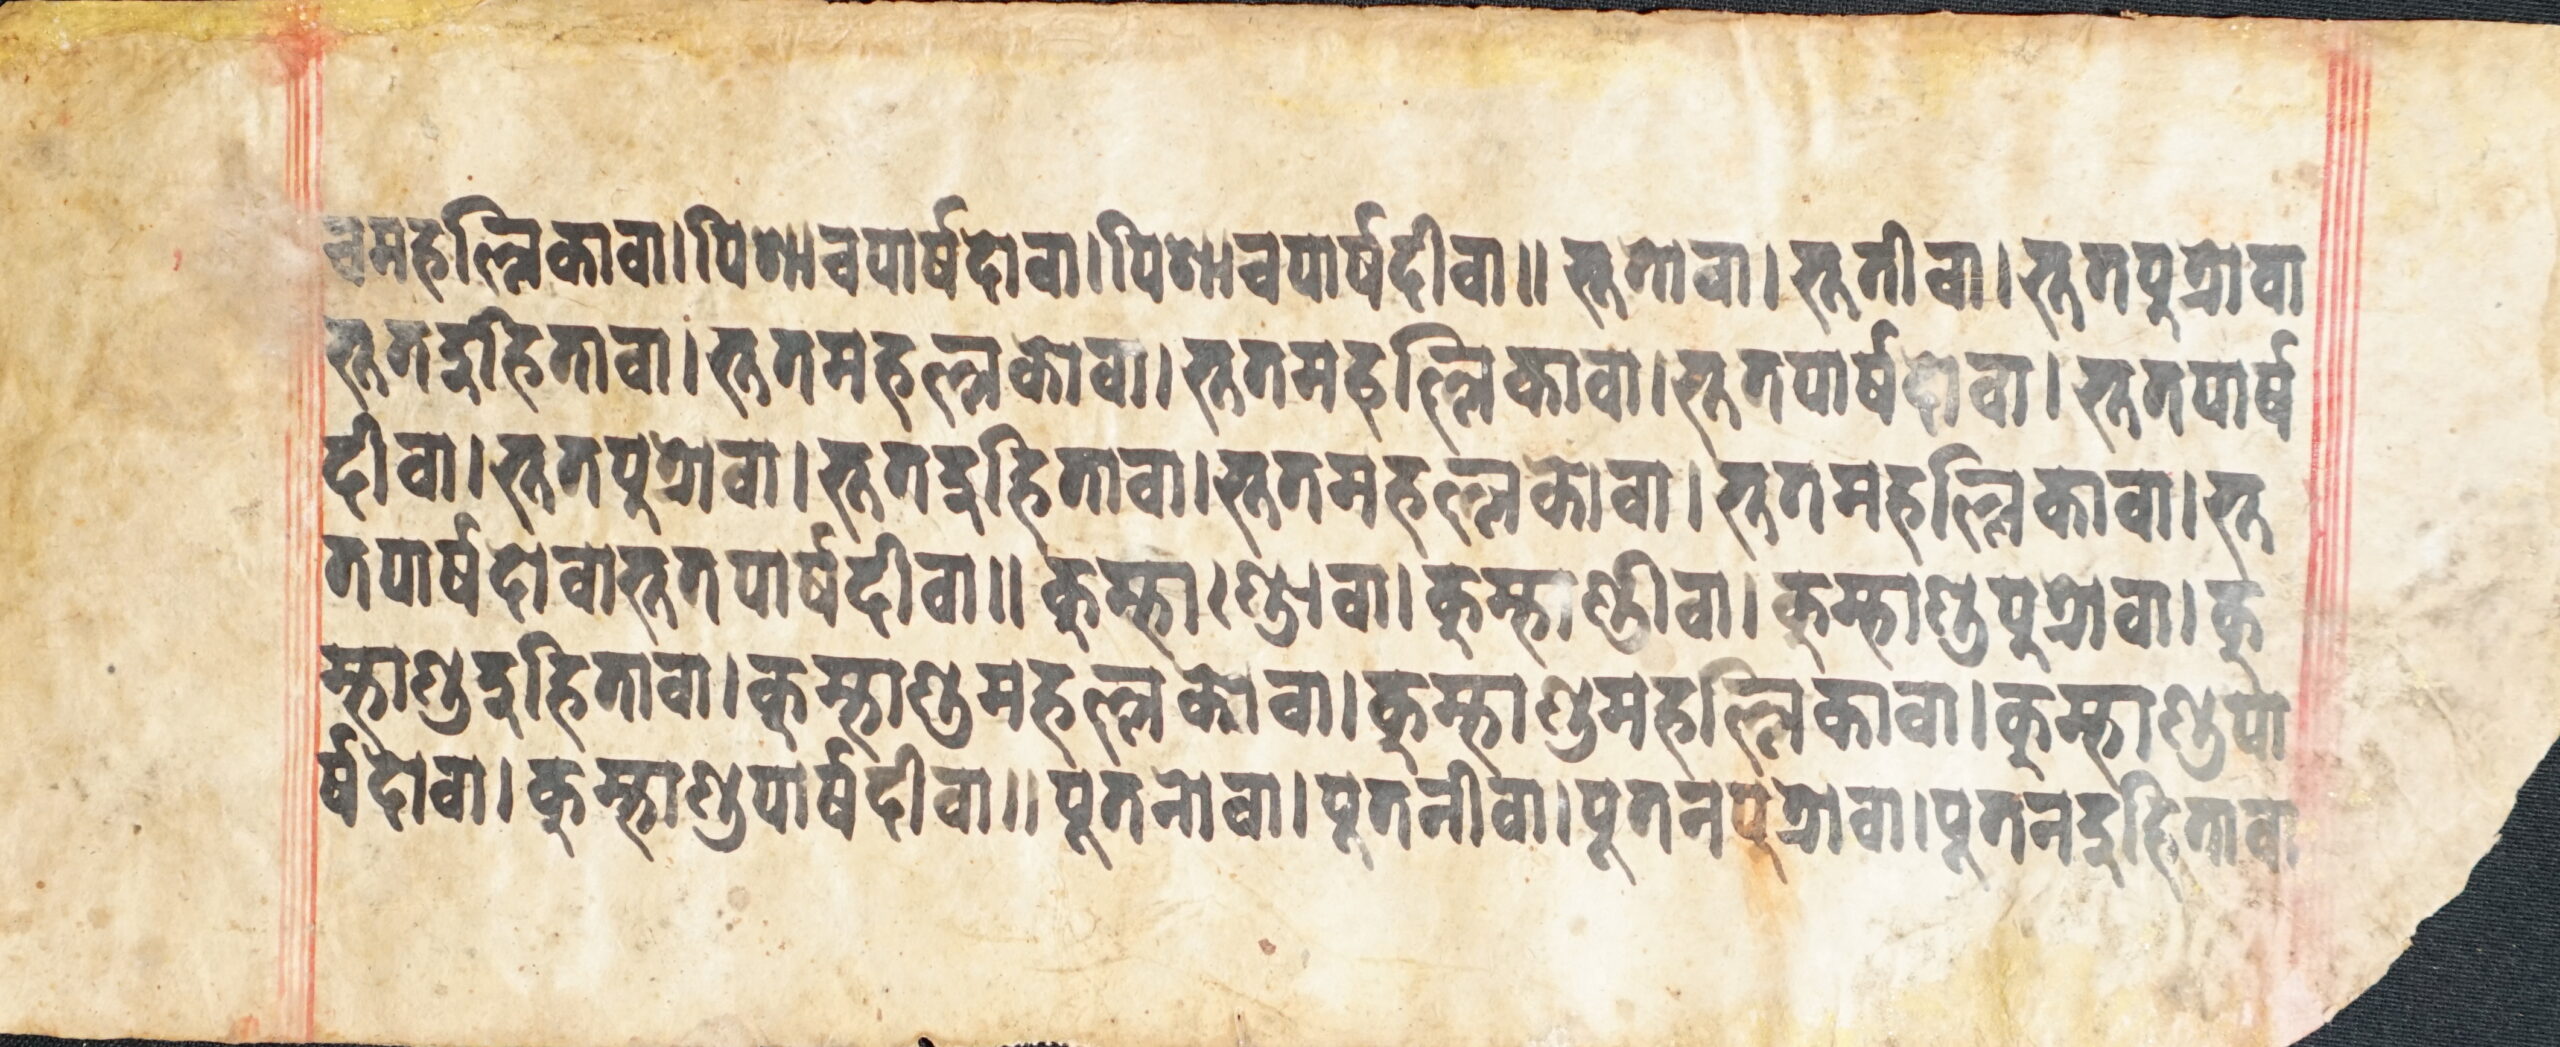 चमहल्लिकावा।पिशाचपार्षदोवा।पिशाचपार्षदीवा॥ भूतोवा।भूतीवा।भूतपुत्रोवा
भूतदुहितावा।भूतमहल्लकोवा।भूतमहल्लिकावा।भूतपार्षदोवा।भूतपार्ष
दीवा।भूतपुत्रोवा।भूतदुहितावा।भूतमहल्लकोवा।भूतमहल्लिकावा।भू
तपार्षदोवाभूतपार्षदीवा॥ कुम्भाण्डोवा।कुम्भाण्डीवा।कुम्भाण्डपुत्रोवा।कु
म्भाण्डदुहितावा।कुम्भाण्डमहल्लकोवा।कुम्भाण्डमहल्लिकावा।कुम्भाण्डपा
र्षदोवा।कुम्भाण्डपार्षदीवा॥पूतनोवा।पूतनीवा।पूतनपुत्रोवा।पूतनदुहितावा